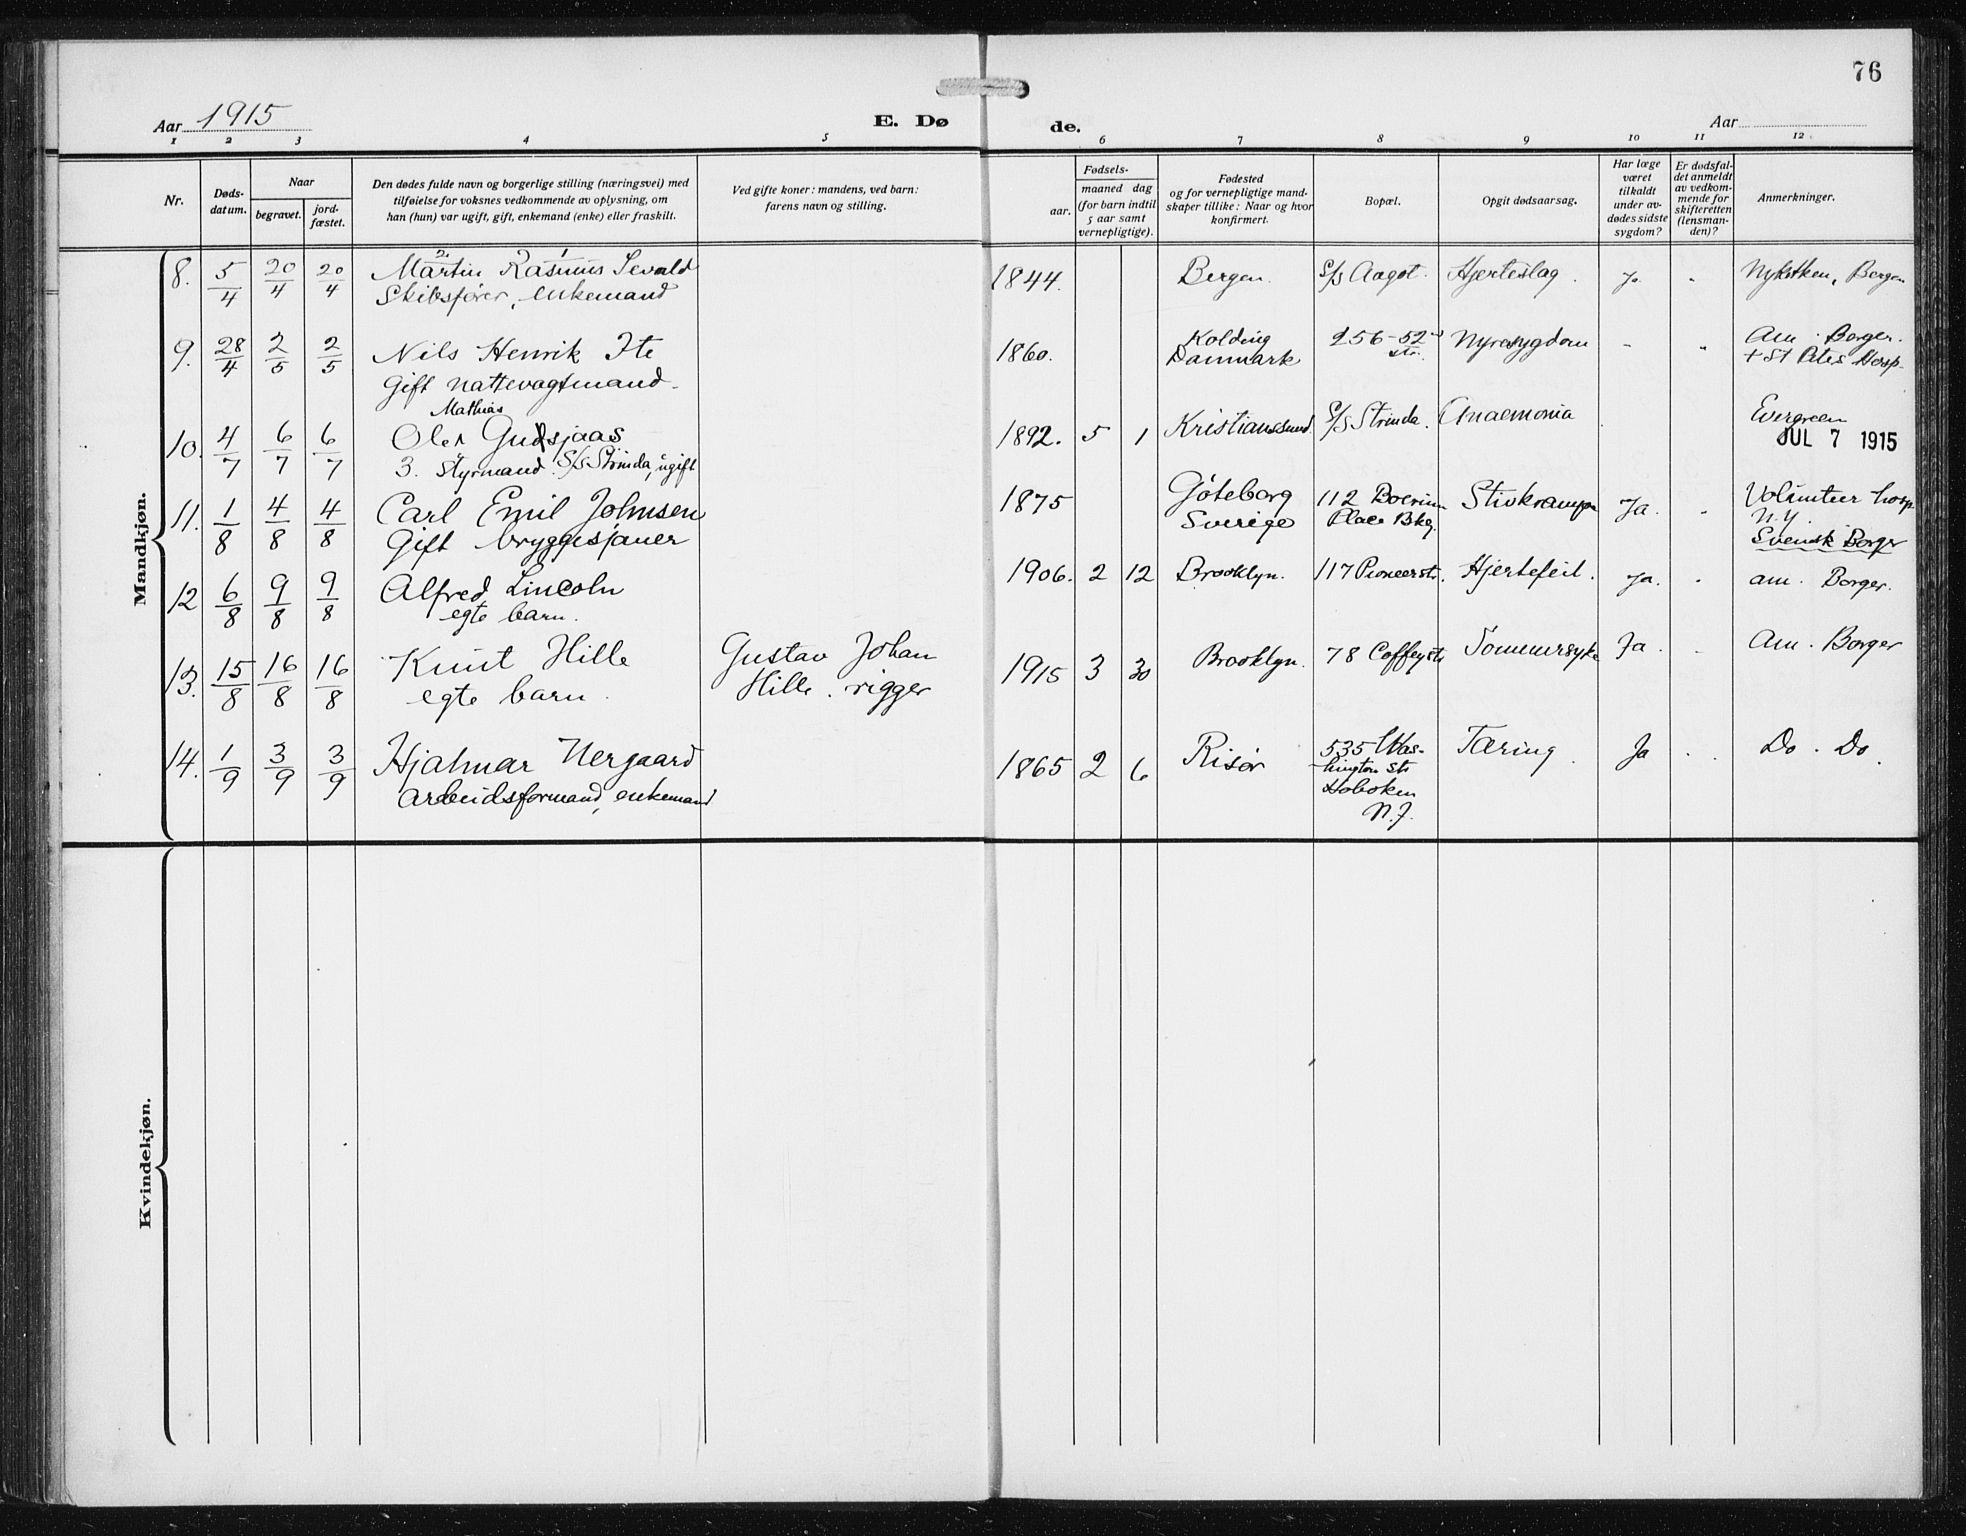 76
Aar 1915
E. Dø
de.
Aar
1 2 3 4 5 6 7 8 9 10 11 12
Nr.
Døds-
datum.
Naar
begravet.
jord-
fæstet.
Den dødes fulde navn og borgerlige stilling (næringsvei) med
tilføielse for voksnes vedkommende av oplysning, om
han (hun) var ugift, gift, enkemand (enke) eller fraskilt.
Ved gifte koner: mandens, ved barn:
farens navn og stilling.
Fødsels-
aar.
maaned dag
(for barn indtil
5 aar samt
vernepligtige).
Fødested
og for vernepligtige mand-
skaper tillike: Naar og hvor
konfirmert.
Bopæl.
Opgit dødsaarsag.
Har læge
været
tilkaldt
under av-
dødes sidste
sygdom?
Er dødsfal-
det anmeldt
av vedkom-
mende for
skifteretten
(lensman-
den)?
Anmerkninger.
Mandkjøn.
2. 1
8. 5/4 20/4 20/4 Martin Rasmus Sevald 1844. Bergen. S/S Aagot. Hjerteslag. Ja. " Nykirken, Bergen
Skibsfører, enkemand
9. 28/4 2/5 2/5 Nils Henrik Ite 1860. Kolding 256-52nd Nyresygdom - " Am. Borger.
Danmark str. + St Petes Hosp.
Gift nattevagtmand.
Mathias
10. 4/7 6/7 6/7 Oler Gudsjaas 1892. 5 1 Kristianssund S/S Strinda. Anaemonia Evergreen
JUL 7 1915
3. Styrmand S/S Strinda, ugift
11. 1/8 4/8 4/8 Carl Emil Johnsen 1875 Göteborg 112 Boerum Stivkrampe Ja. . Volunteer hosp.
Gift bryggesjauer Sverige Place Bkg. N.Y.
Svensk Borger
12 6/8 9/8 9/8 Alfred Lincoln 1906. 2 12 Brooklyn. 117 Pioneerstr. Hjertefeil. Ja. . am. Borger.
egte barn.
13. 15/8 16/8 16/8 Knut Hille Gustav Johan 1915 3 30 Brooklyn. 78 Coffeystr Sommersyke Ja. . Am. Borger
egte barn. Hille. rigger
14. 1/9 3/9 3/9 Hjalmar Nergaard 1865 2 6 Risør 535 Was- Tæring. Ja . Do. Do.
Arbeidsformand, enkemand hington str
Hoboken
N.J.
Kvindekjøn.